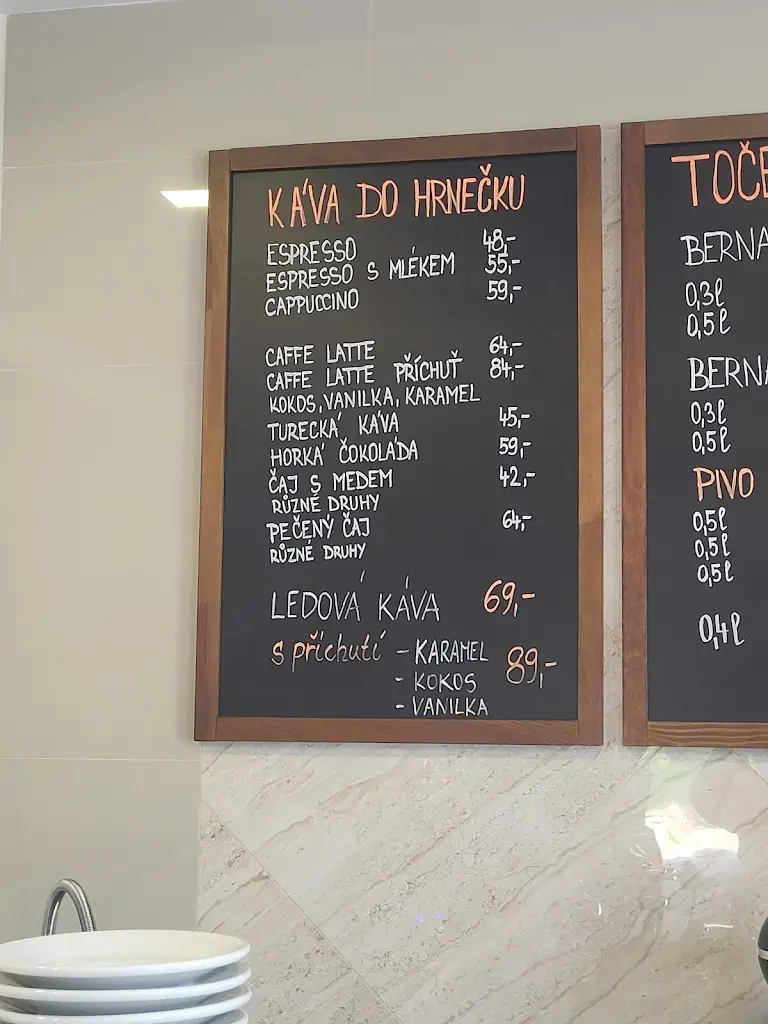 KÁVA DO HRNEČKU
ESPRESSO 48,-
ESPRESSO S MLÉKEM 55,-
CAPPUCCINO 59,-
CAFFE LATTE 64,-
CAFFE LATTE PŘÍCHUŤ 84,-
KOKOS, VANILKA, KARAMEL
TURECKÁ KÁVA 45,-
HORKÁ ČOKOLÁDA 59,-
ČAJ S MEDEM 42,-
RŮZNÉ DRUHY
PEČENÝ ČAJ 64,-
RŮZNÉ DRUHY
LEDOVÁ KÁVA 69,-
S příchutí - KARAMEL 89,-
- KOKOS
- VANILKA
0,3l
0,5l
0,3l
0,5l
PIVO
0,5l
0,5l
0,5l
0,4l